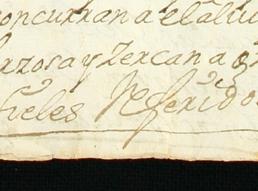 concurran a el aluu
razosa y Zercana
fieles Referido